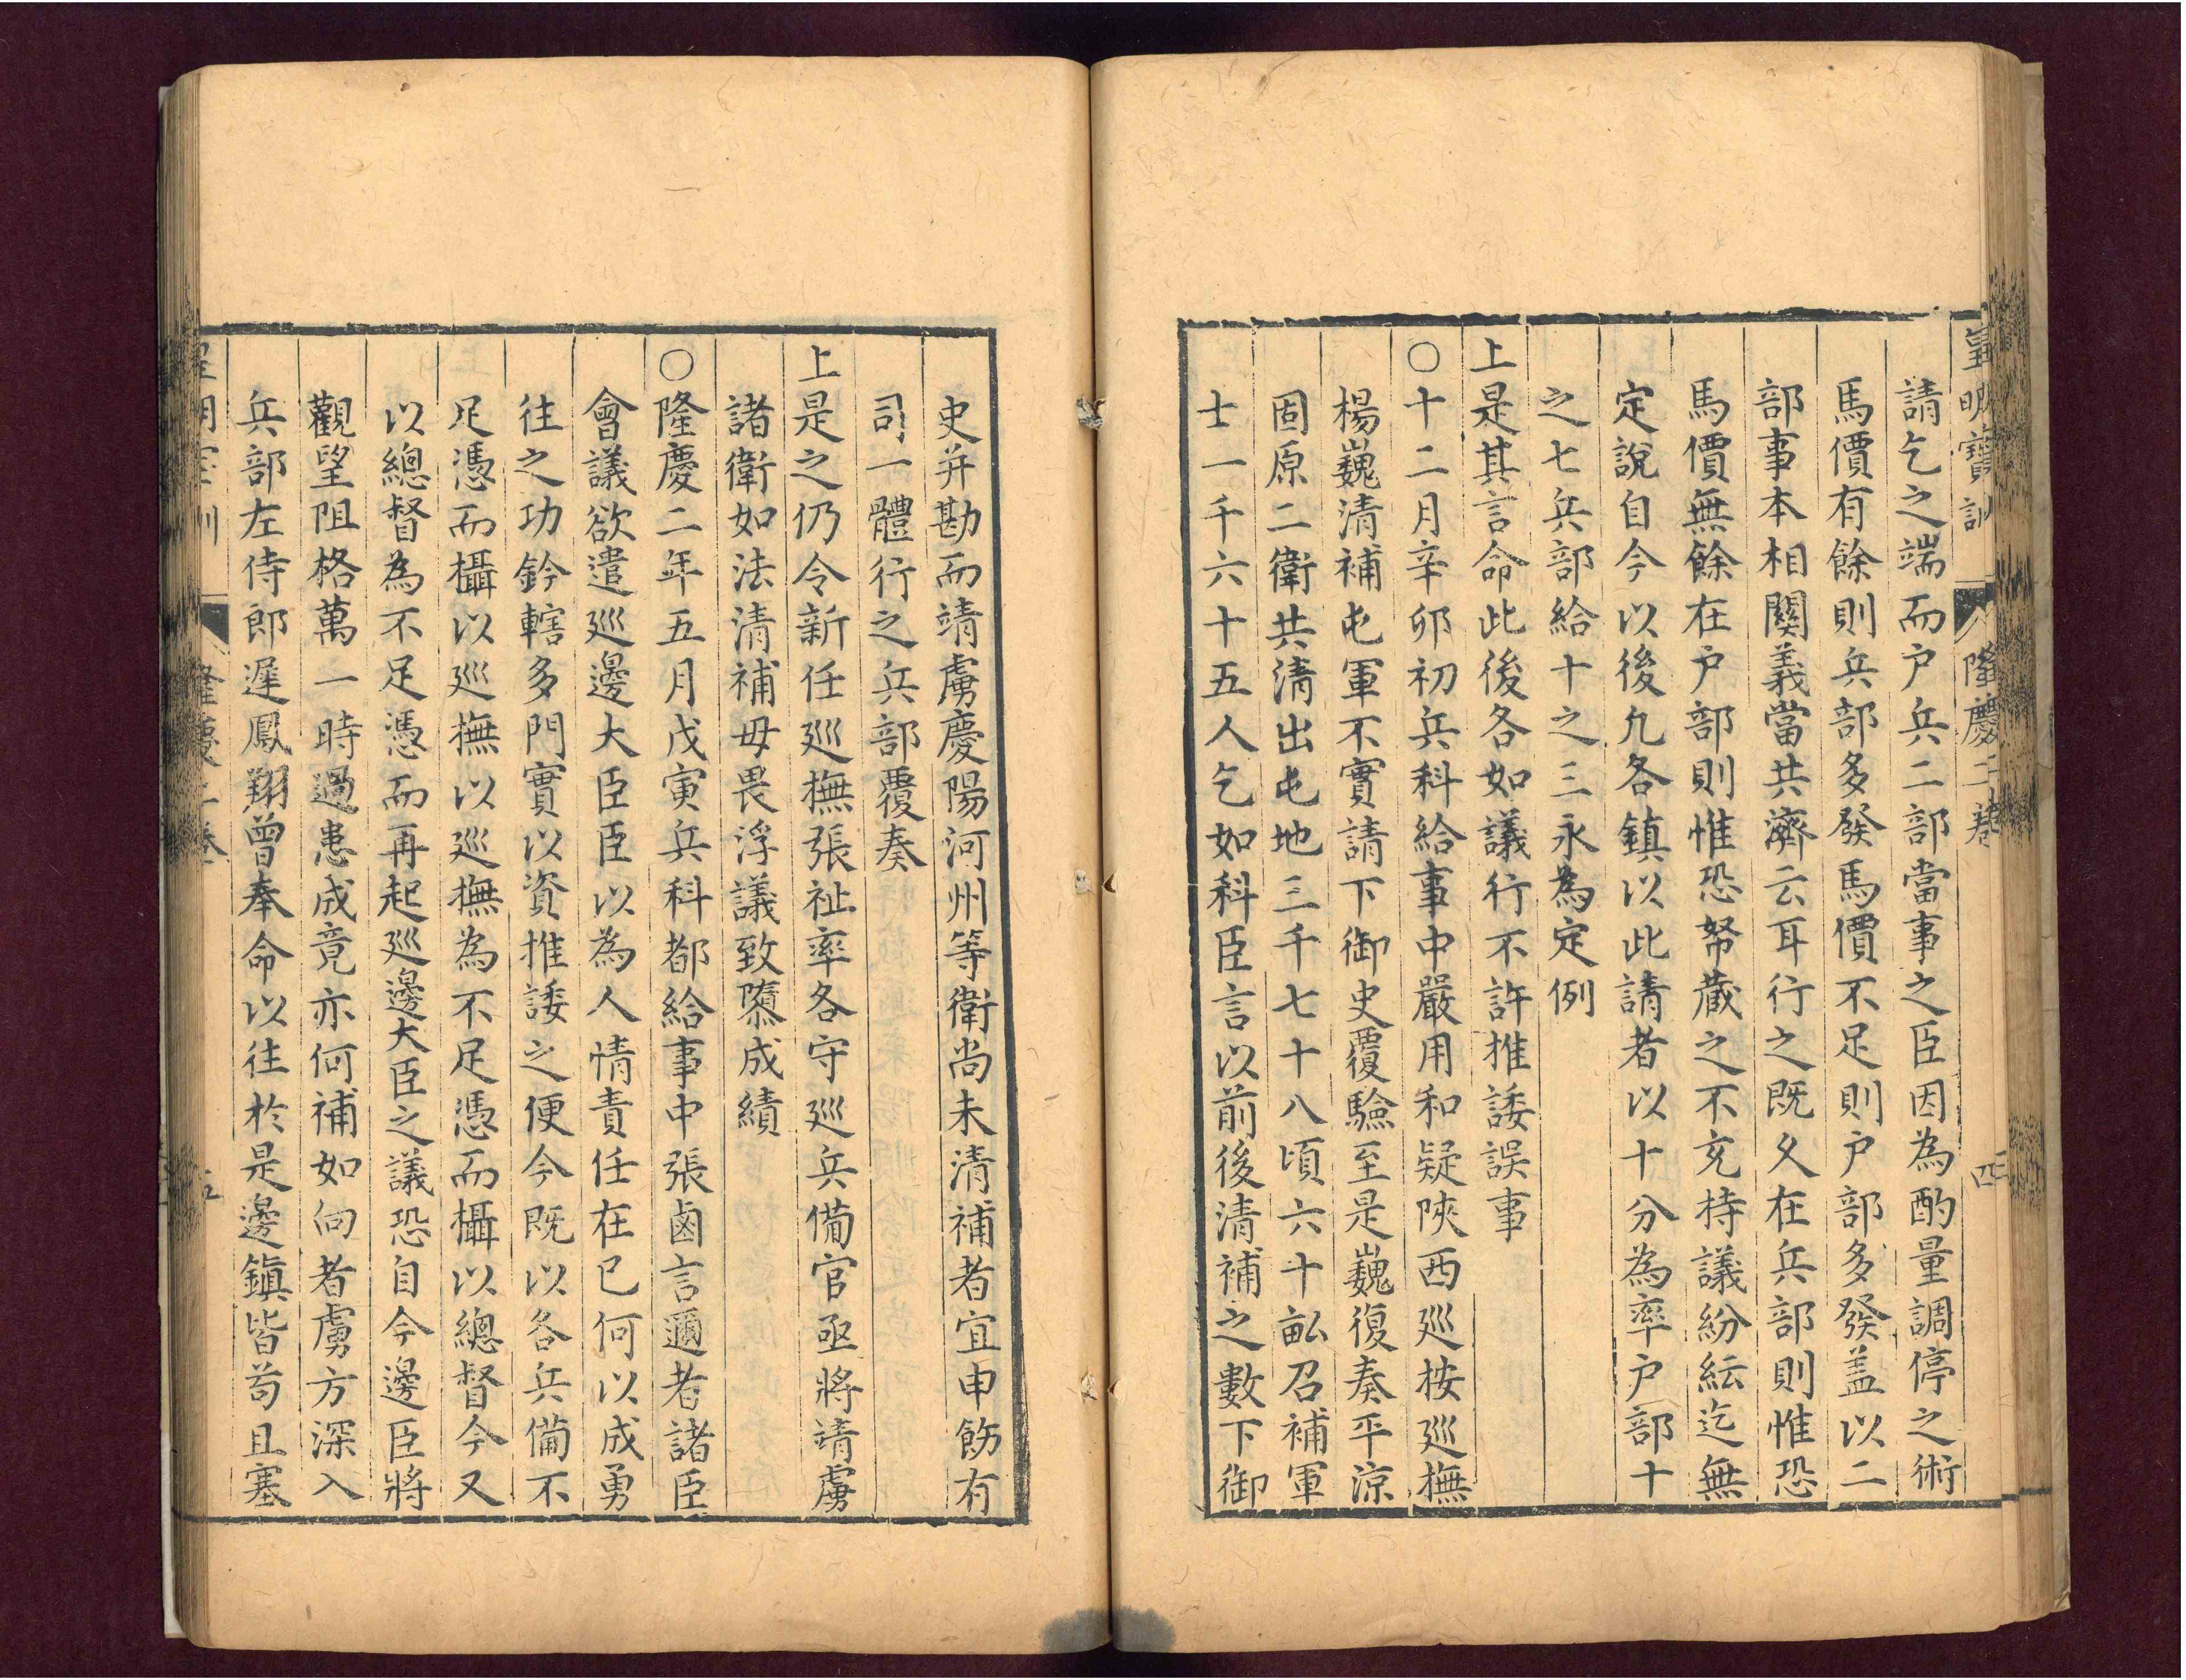 皇明寶訓 隆慶二卷 四
請乞之端而户兵二部當事之臣因為酌量調停之術
馬價有餘則兵部多發馬價不足則户部多發盖以二
部事本相關義當共濟云耳行之既久在兵部則惟恐
馬價無餘在户部則惟恐帑藏之不充持議紛紜迄無
定說自今以後凢各鎮以此請者以十分為率户部十
之七兵部給十之三永為定例
上是其言命此後各如議行不許推諉誤事
○十二月辛卯初兵科給事中嚴用和疑陝西廵按廵撫
楊巍清補屯軍不實請下御史覆驗至是巍復奏平凉
固原二衛共清出屯地三千七十八頃六十畝召補軍
士一千六十五人乞如科臣言以前後清補之數下御
史并勘而靖虜慶陽河州等衛尚未清補者宜申飭有
司一體行之兵部覆奏
上是之仍令新任廵撫張祉率各守廵兵備官亟將靖虜
諸衛如法清補毋畏浮議致隳成績
○隆慶二年五月戊寅兵科都給事中張鹵言邇者諸臣
會議欲遣廵邊大臣臣以為人情責任在已何以成勇
徃之功鈐轄多門實以資推諉之便今既以各兵備不
足憑而攝以廵撫以廵撫為不足憑而攝以總督今又
以總督為不足憑而再起廵邊大臣之議恐自今邊臣將
觀望阻格萬一時過患成竟亦何補如向者虜方深入
兵部左侍郎遲鳳翔曾奉命以徃於是邊鎮皆苟且塞